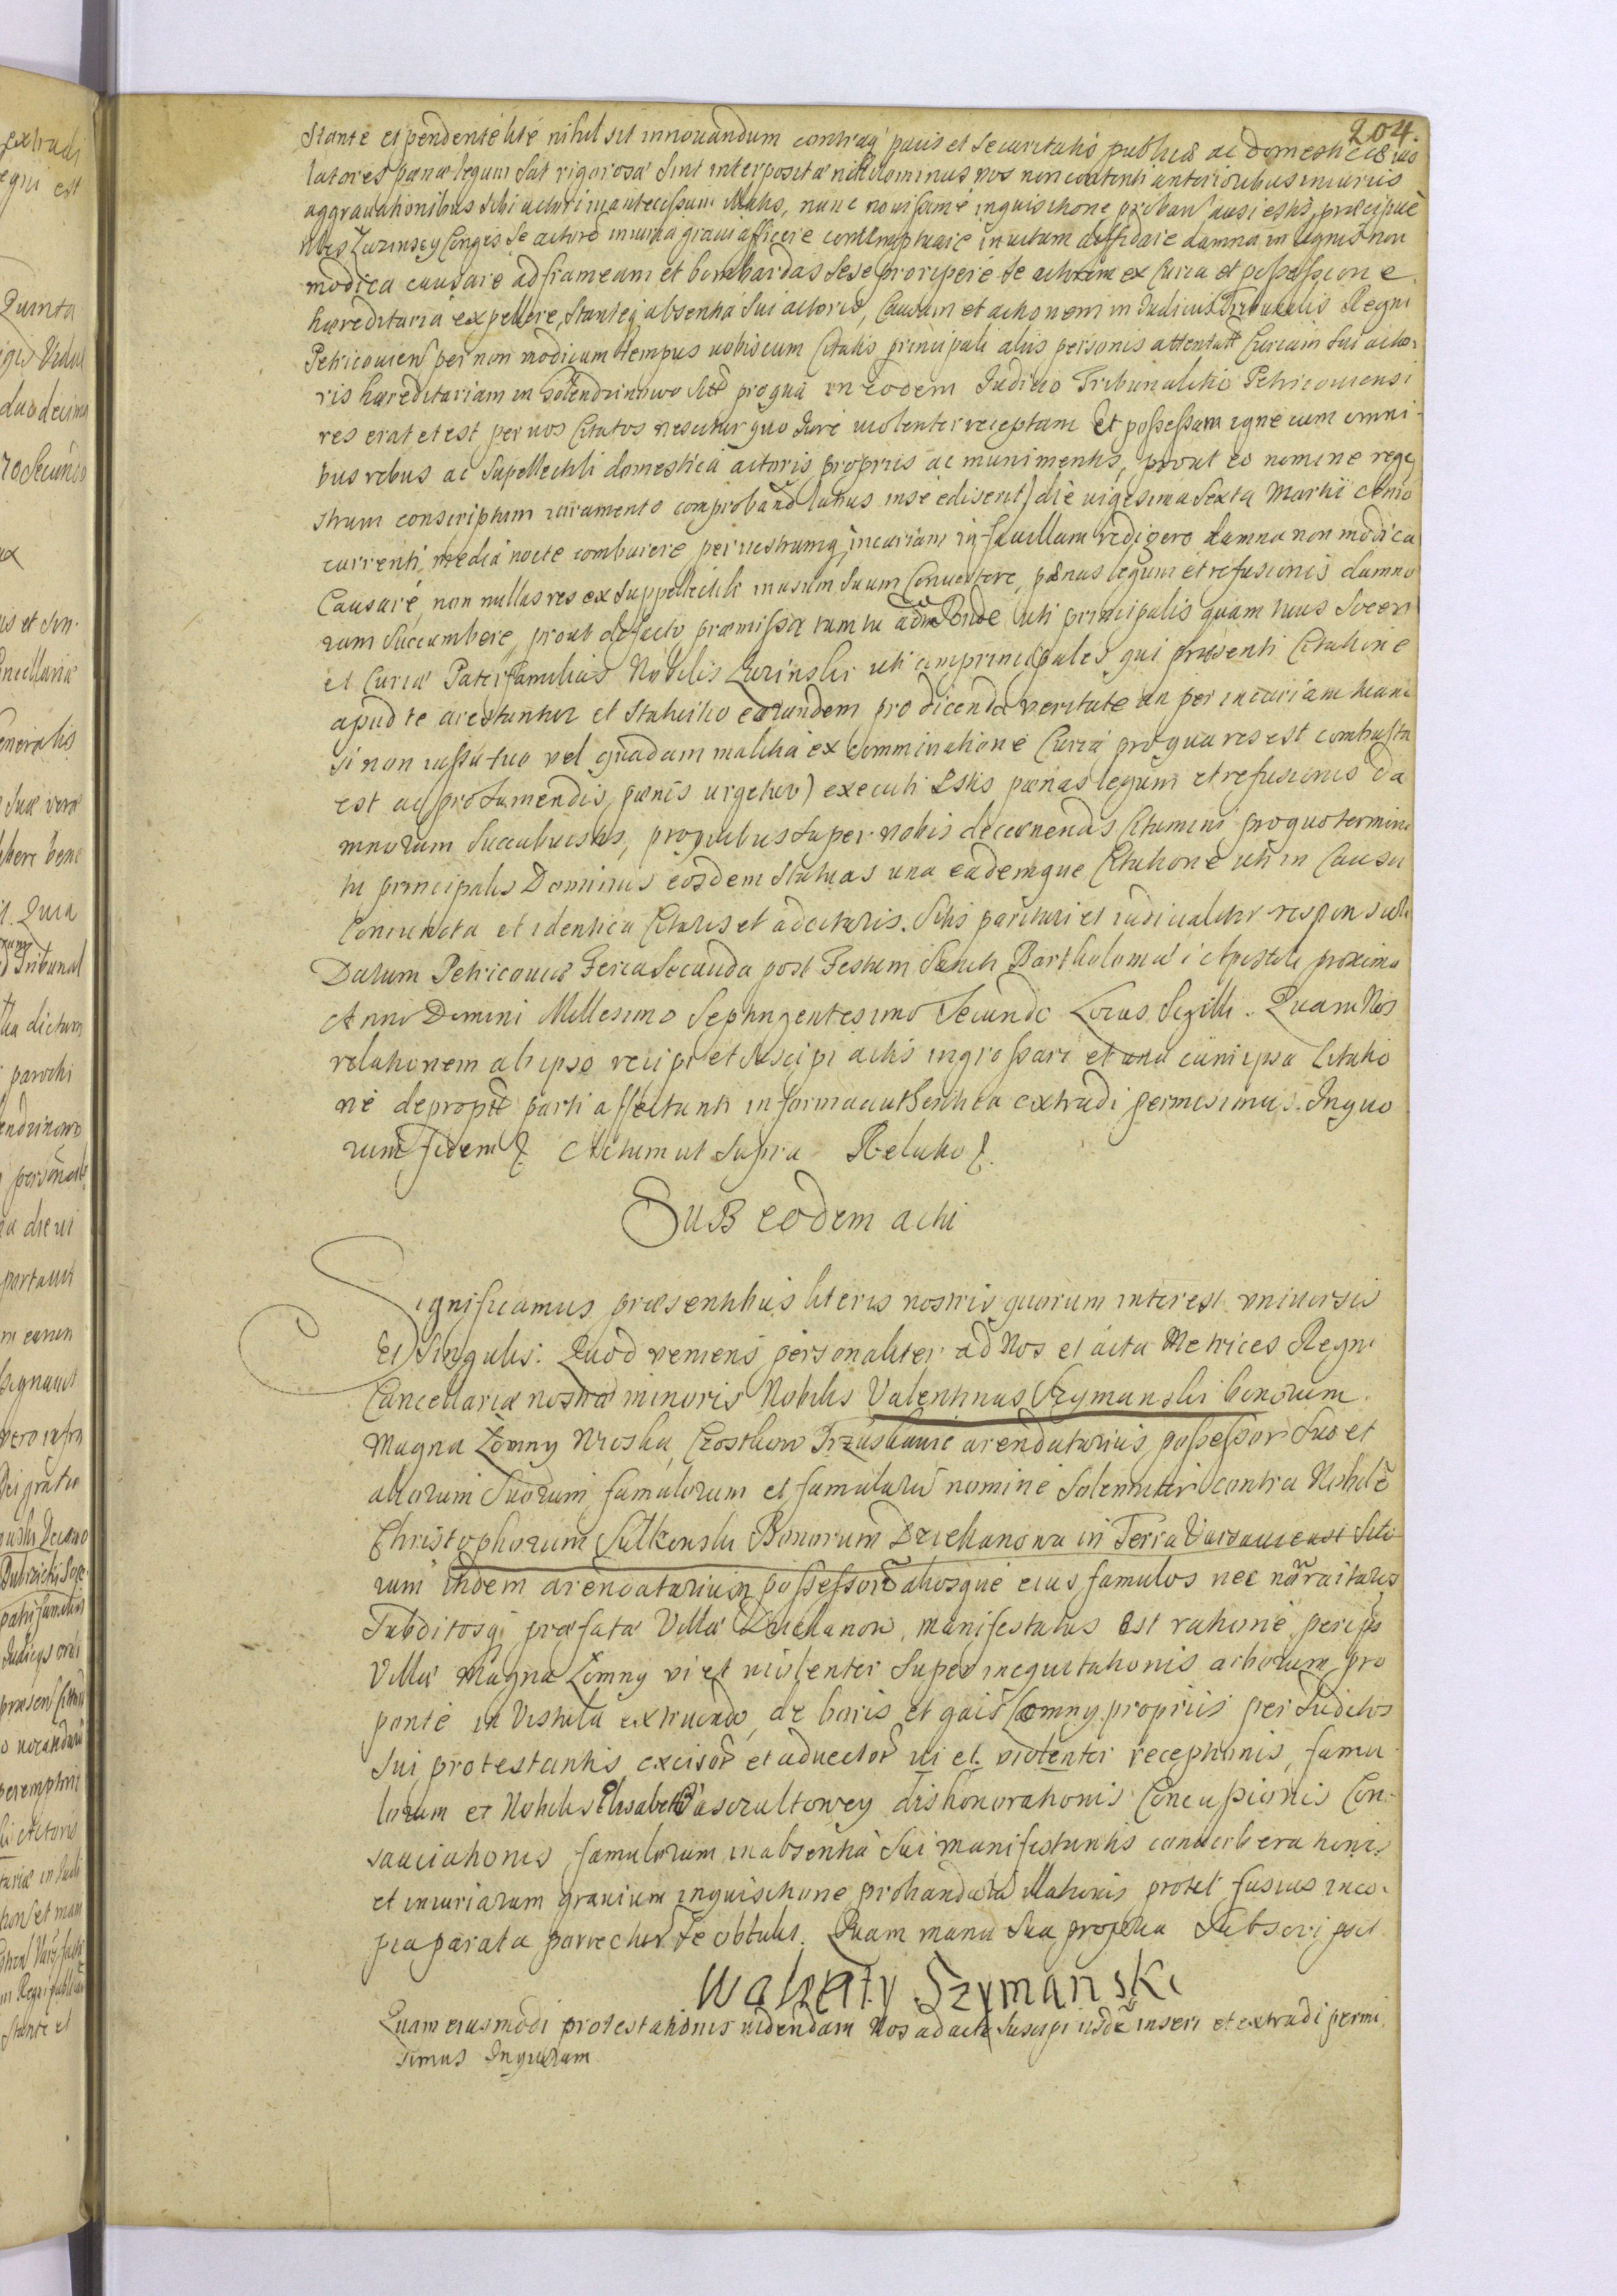 204.
Stante et pendente lite nihil sit innouandum contraq pacis et securitatis publicæ ac domesticæ uio
latores pœnæ legum sat rigorosæ sint interpositæ nihilominus vos non contenti anterioribus iniuriis
aggrauationibus sibi actori in antecessum illatis, nunc nouissime inquisitione proban ausi estis, præcipue
se actore iniuria graui afficere contemptuare in uitam diffidare damna in lignis non
modica causare ad frameam et bombardas sese proripere se actorem ex Curia et possessione
hæreditaria expellere, stanteq absentia sui actoris, Causam et actionem in Iudiciis Tribunalis Regni
Petricouien per non modicum tempus uobiscum Citatis principali aliis personis attentatt Curiam sui acto
ris hæreditariam in Solendzinowo sitt pro qua in eodem Iudicio Tribunalitio Petricouiensi
res erat et est per uos Citatos nescitur quo Iure uiolenter receptam et possessam igne cum omni-
bus rebus ac supellectili domestica actoris propriis ac munimentis, prout eo nomine rege
strum conscriptum iuramento comproband latius in se ediserit) die uigesima sexta Martii anno
currenti media nocte comburere per uestramq incuriam in fauillam redigere damna non modica
Causare, non nullas res ex suppellectili in usum suum Conuertere, pœnas legum et refusionis damno
rum succumbere, prout de facto præmissa tam tu uti principalis quam tuus Socer
et Curiæ Paterfamilias Nobilis Zuzinski uti comprincipales qui præsenti Citatione
apud te arestantur et stabitio eorundem pro dicenda veritate an per incuriam
si non iussu tuo vel quadam malitia ex comminatione Curia pro qua res est combusta
est ac pro sumendis pœnis urgetur) executi estis pœnas legum et refusionis da
mnorum succubuistis, pro quibus super vobis decernendis Citamini pro quo termino
tu principalis Dominus eosdem statuas una eademque Citatione uti in Causa
Coniuncta et identica Citaris et adcitaris. Sitis parituri et iudicialiter responsuri
Datum Petricouiæ Feria Secunda post Festum Sancti Bartholomæi Apostoli proxima
Anno Domini Millesimo Septingentesimo Secundo Locus Sigilli. Quam Nos
relationem ab ipso recipi et suscipi actis ingrossari et una cum ipsa Citatio
ne deproptt parti affectanti in forma authentica extradi permisimus. In quo
rum fidem Actum ut supra Relatio
Sub eodem acti
Significamus præsentibus literis nostris quorum interest vniuersis
et singulis. Quod veniens personaliter ad Nos et acta Metrices Regni
Cancellariæ nostræ minoris Nobilis Valentinus Szymanski bonorum
Magna Łomny Wroska, Czostkow Trzaskanie arendatarius possessor suo et
aliorum suorum famulorum et famularū nomine solenniter contra Nobilē
Christophorum Sulkowski Bonorum Dziekanowa in Terra Varsauiensi sito-
rum itidem arendatarium possessorē aliosque eius famulos nec
Subditosq præfatæ Villæ Dziekanow, manifestatus est ratione per
Villæ Magna Łomny vi et uiolenter super inequitationis arborum pro
ponte in Vistula extruendo, de boris et gais Łomny propriis per Subditos
sui protestantis excisor et aduector ui et violenter receptionis, famu
lorum et Nobilis Elisabeth dishonorationis Concussionis Con-
sauciationis famulorum in absentia sui manifestantis conuerberationis
et iniuriarum grauium inquisitione probandarū illationis protet fusius in eo
præparata parte citius se obtulit. Quam manu sua propria subscripsit
Walenty Szymanski
Quam eiusmodi protestationis Nos ad acta suscipi iisdē inseri et extradi permi
simus In quorum